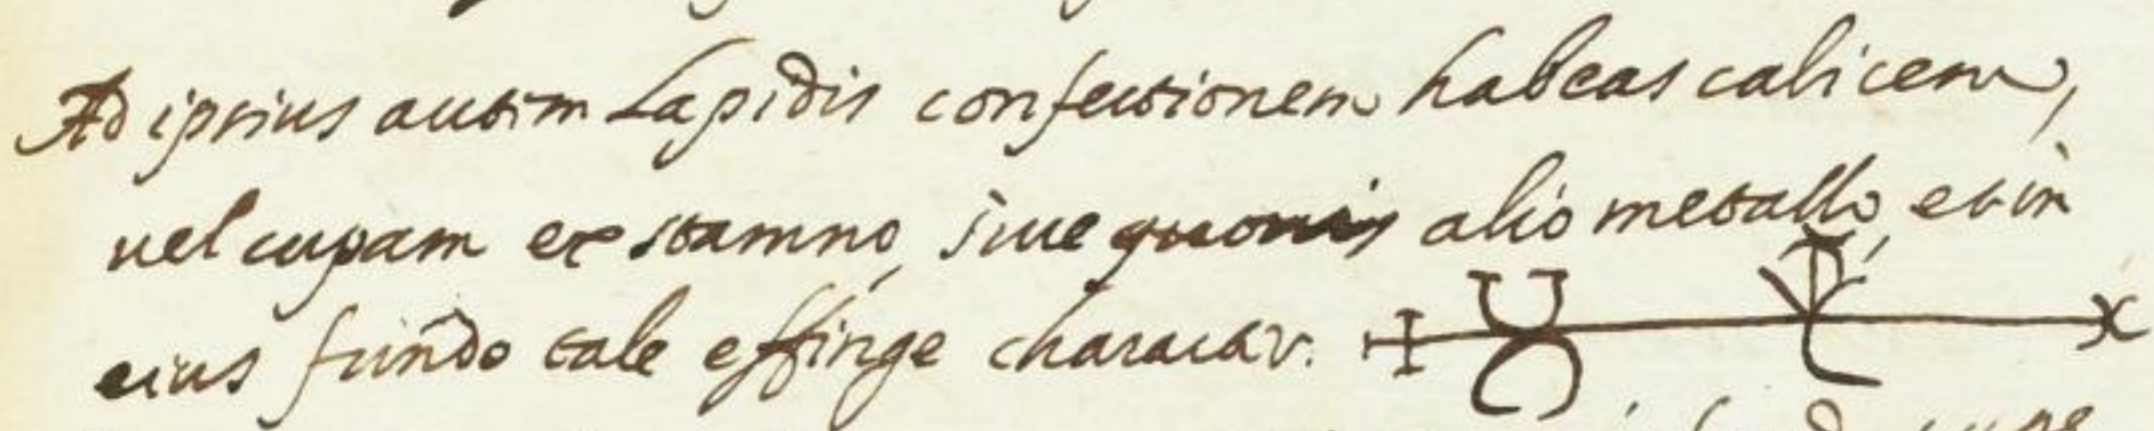 Ad ipsius autem Lapidis confectionem habeas calicem,
uel cupam ex stamno, siue quouis alio metallo, et in
eius fundo tale effinge character.